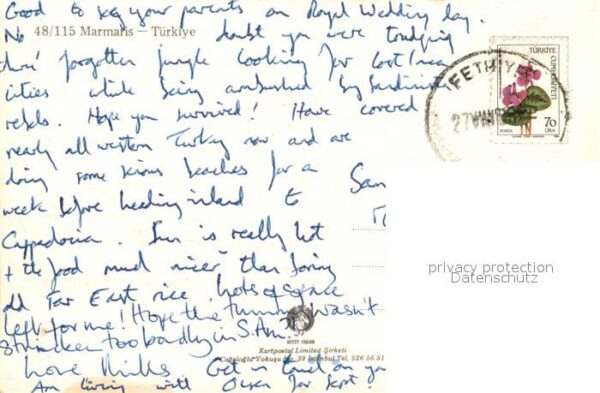 Good to see your parents on Royal Wedding day.
48/115 Marmaris — Türkiye
No doubt you were trudging
thro' forgotten jungle looking for lost Inca
cities while being ambushed by
rebels. Hope you survived! Have covered
nearly all western Turkey now and are
doing some serious beaches for a
week before heading inland to
Cappadocia. Sun is really hot
+ the food much nicer than boring
old Far East rice. Lots of space
left for me! Hope the tummy wasn't
stricken too badly in S. Am.
Love
Get in touch on
Am living with for Sept!
San
TÜRKİYE CUMHURİYETİ
70
LİRA
POSTA
FETHİYE
Kartpostal Limited Şirketi
Cağaloğlu Yokuşu No. 39 İstanbul Tel. 526 56 51
privacy protection
Datenschutz